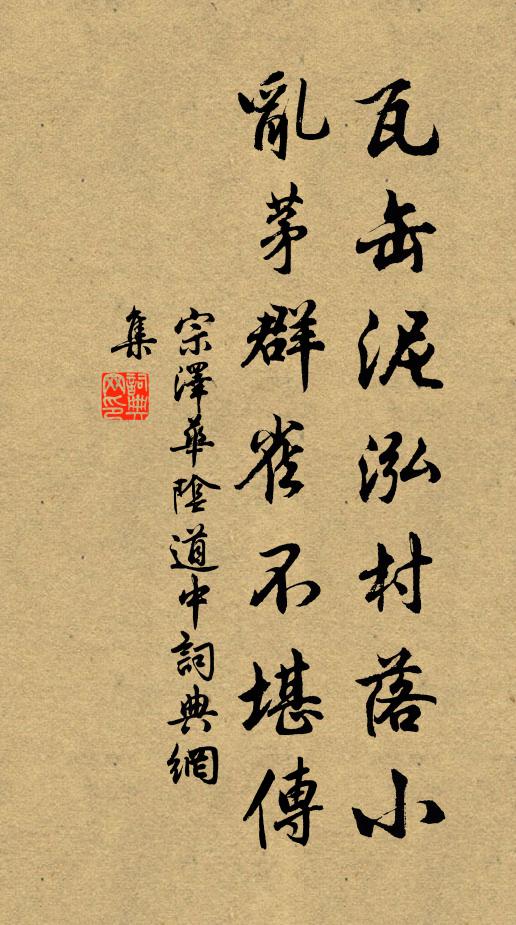 瓦缶泥泓村落小
亂茅群雀不堪傳
宗澤華陰道中詞典網
集
詞典網印